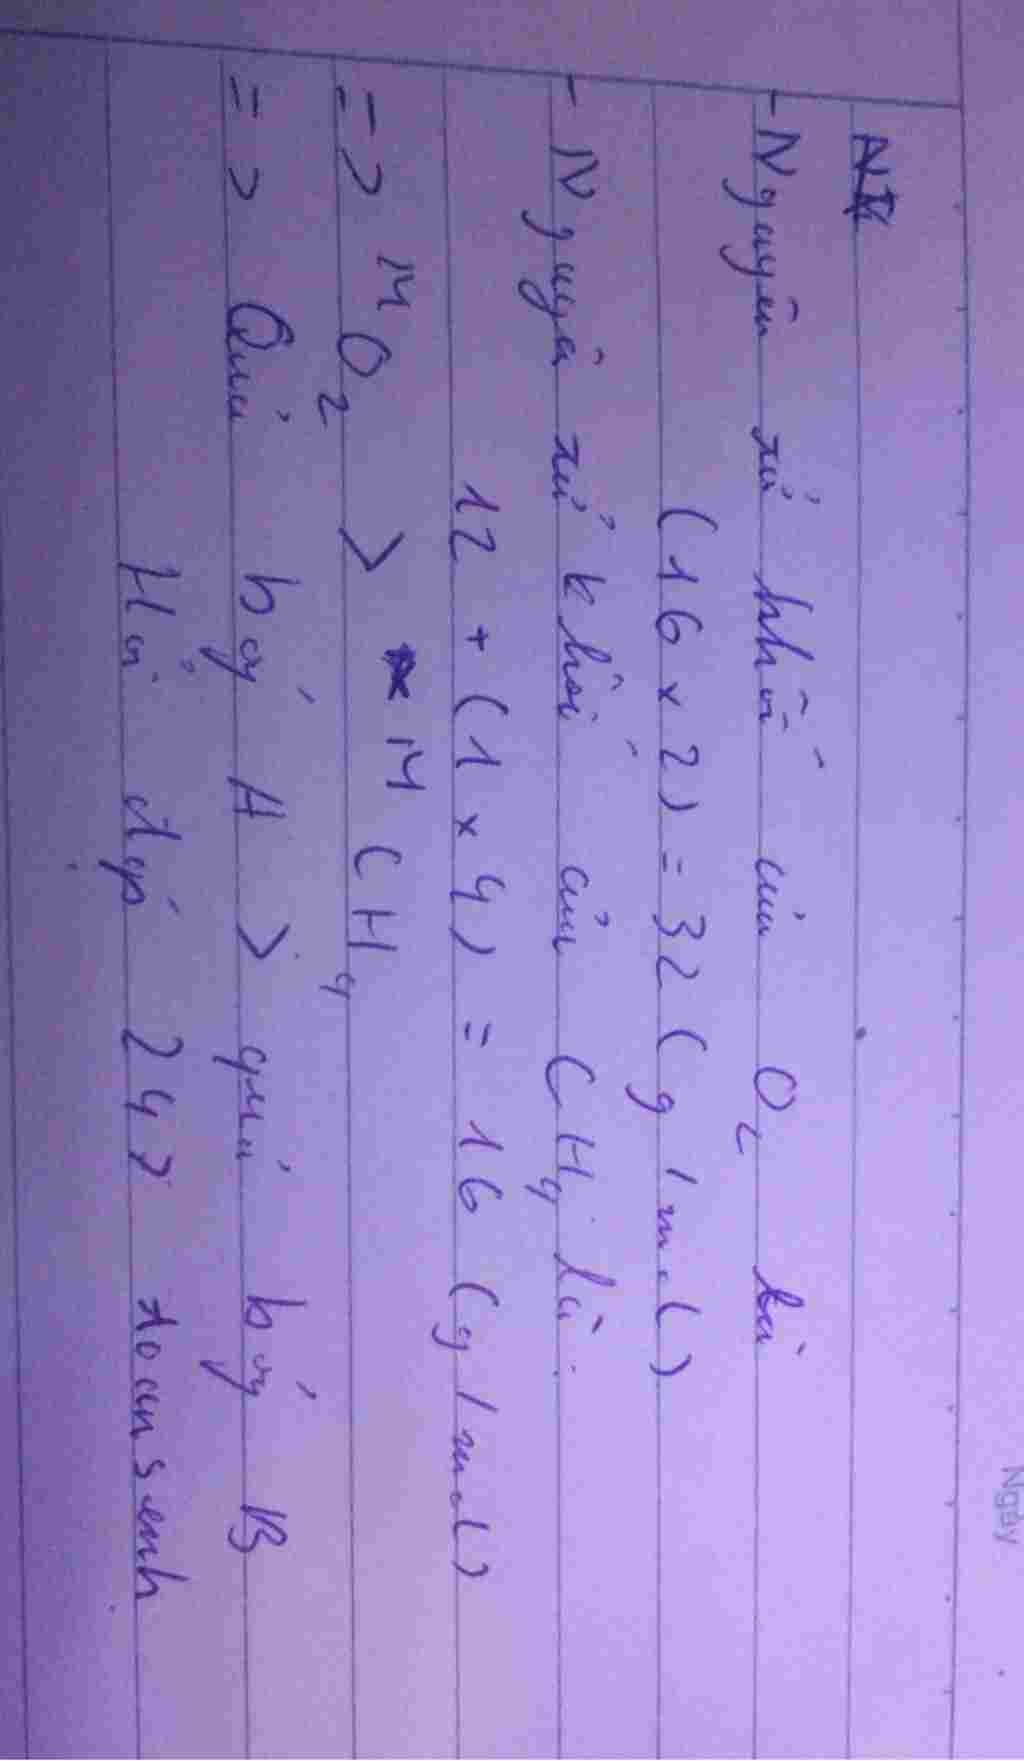 Ngày
- Nguyên tử khối của O2 là
(16 x 2) = 32 (g/mol)
- Nguyên tử khối của CH4 là:
12 + (1 x 4) = 16 (g/mol)
=> MO2 > MCH4
=> Quả bóng A > quả bóng B
Hỏi đáp 247 toan senh